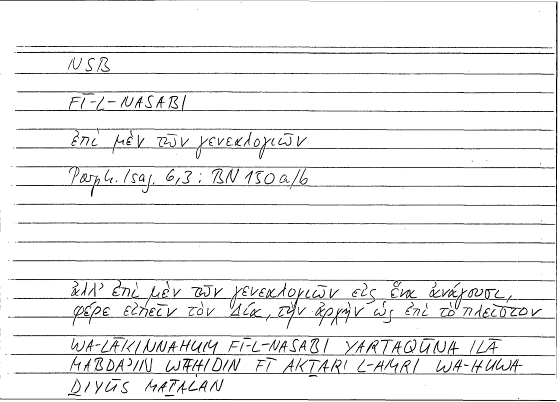 NSB
FĪ-L-NASABI
ἐπὶ μὲν τῶν γενεαλογιῶν
Porph. Isag. 6,3 : BN 150 a/b
ἀλλ' ἐπὶ μὲν τῶν γενεαλογιῶν εἰς ἕνα ἀνάγουσι,
φέρε εἰπεῖν τὸν Δία, τὴν ἀρχὴν ὡς ἐπὶ τὸ πλεῖστον
WA-LĀKINNAHUM FĪ-L-NASABI YARTAQŪNA ILĀ
MABDA'IN WĀḤIDIN FĪ AKṮARI L-AMRI WA-HUWA
ḎIYŪS MAṮALAN